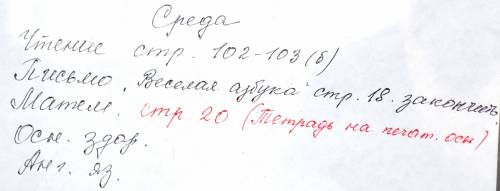 Среда
Чтение стр. 102-103 (б)
Письмо „Веселая азбука" стр. 18. закончить
Матем. стр. 20 (Тетрадь на печат. осн)
Осн. здор.
Анг. яз.